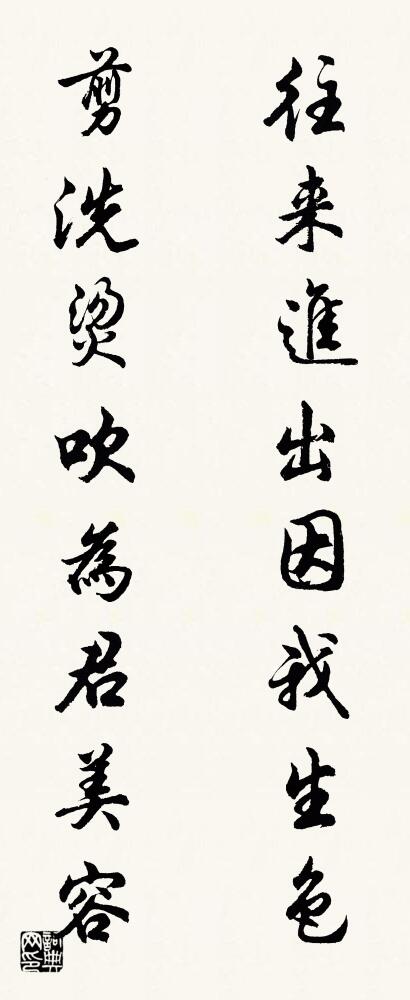 往来進出因我生色
剪洗燙吹為君美容